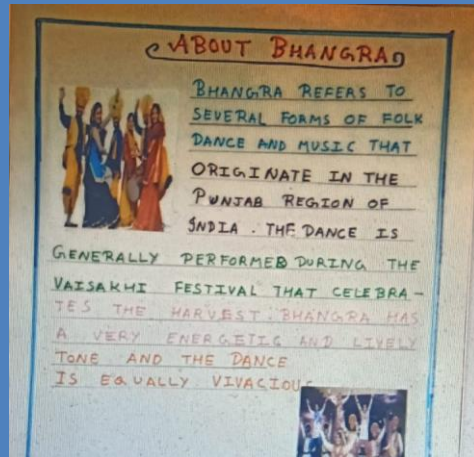 ABOUT BHANGRA
BHANGRA REFERS TO
SEVERAL FORMS OF FOLK
DANCE AND MUSIC THAT
ORIGINATE IN THE
PUNJAB REGION OF
INDIA. THE DANCE IS
GENERALLY PERFORMED DURING THE
VAISAKHI FESTIVAL THAT CELEBRA-
TES THE HARVEST. BHANGRA HAS
A VERY ENERGETIC AND LIVELY
TONE AND THE DANCE
IS EQUALLY VIVACIOUS